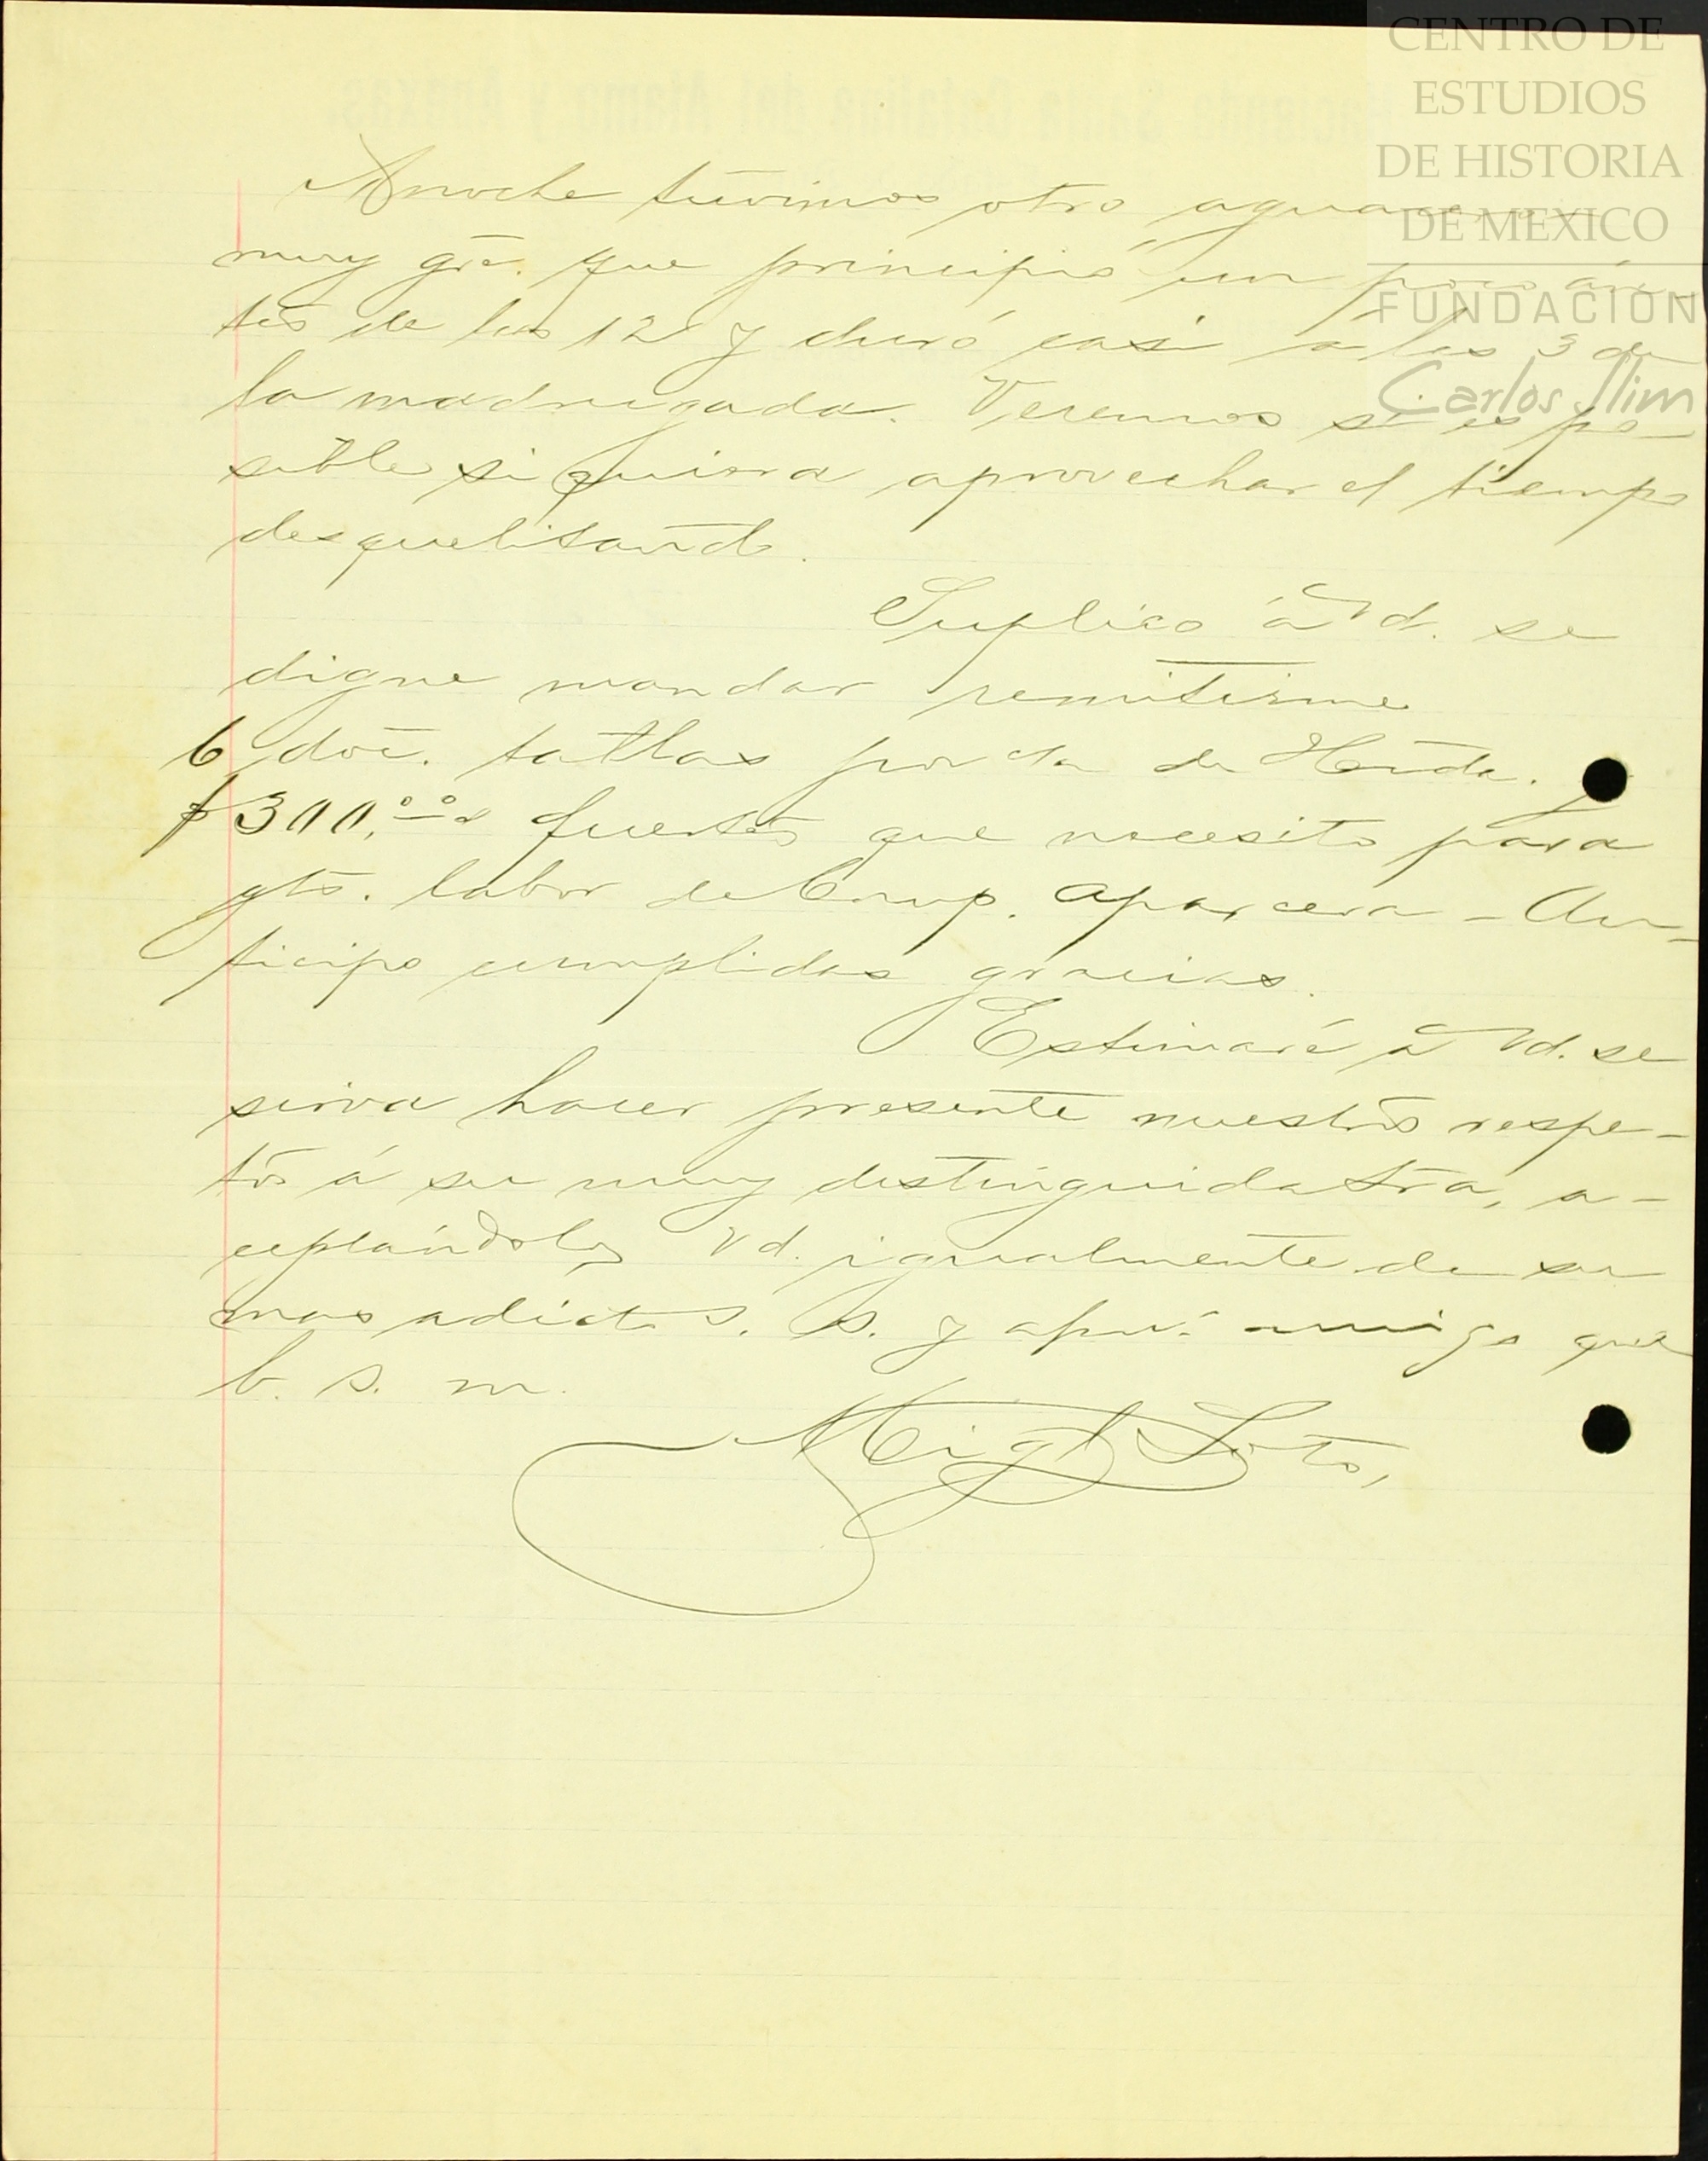 CENTRO DE
ESTUDIOS
DE HISTORIA
DE MEXICO
FUNDACION
Carlos Slim
Anoche tuvimos otro aguacero
muy gre. que principió un poco an-
tes de las 12 y duró casi á las 3 de
la madrugada. Veremos si es po-
sible siquiera aprovechar el tiempo
desquelitando.
Suplico á Vd. se
digne mandar remitirme
6 doc. tatlas de Hcda.
$300.00 fuertes que necesito para
gts. labor de Comp. aparcera - An-
ticipo cumplidas gracias.
Estimaré á Vd. se
sirva hacer presente nuestros respe-
tos á su muy distinguida Sra, a-
ceptándolos Vd. igualmente de su
mas adicto S. S. y apmo. amigo que
b. s. m.
Migl Soto,